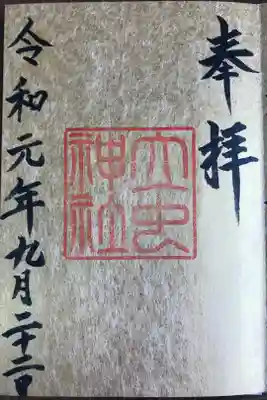 奉拝
大虫
神社
令和元年九月二十二日